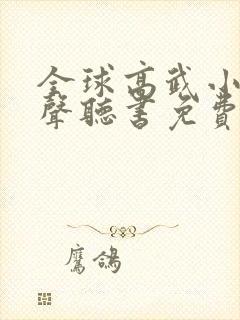 全球高武小
聲聽書免費
鷹鴿